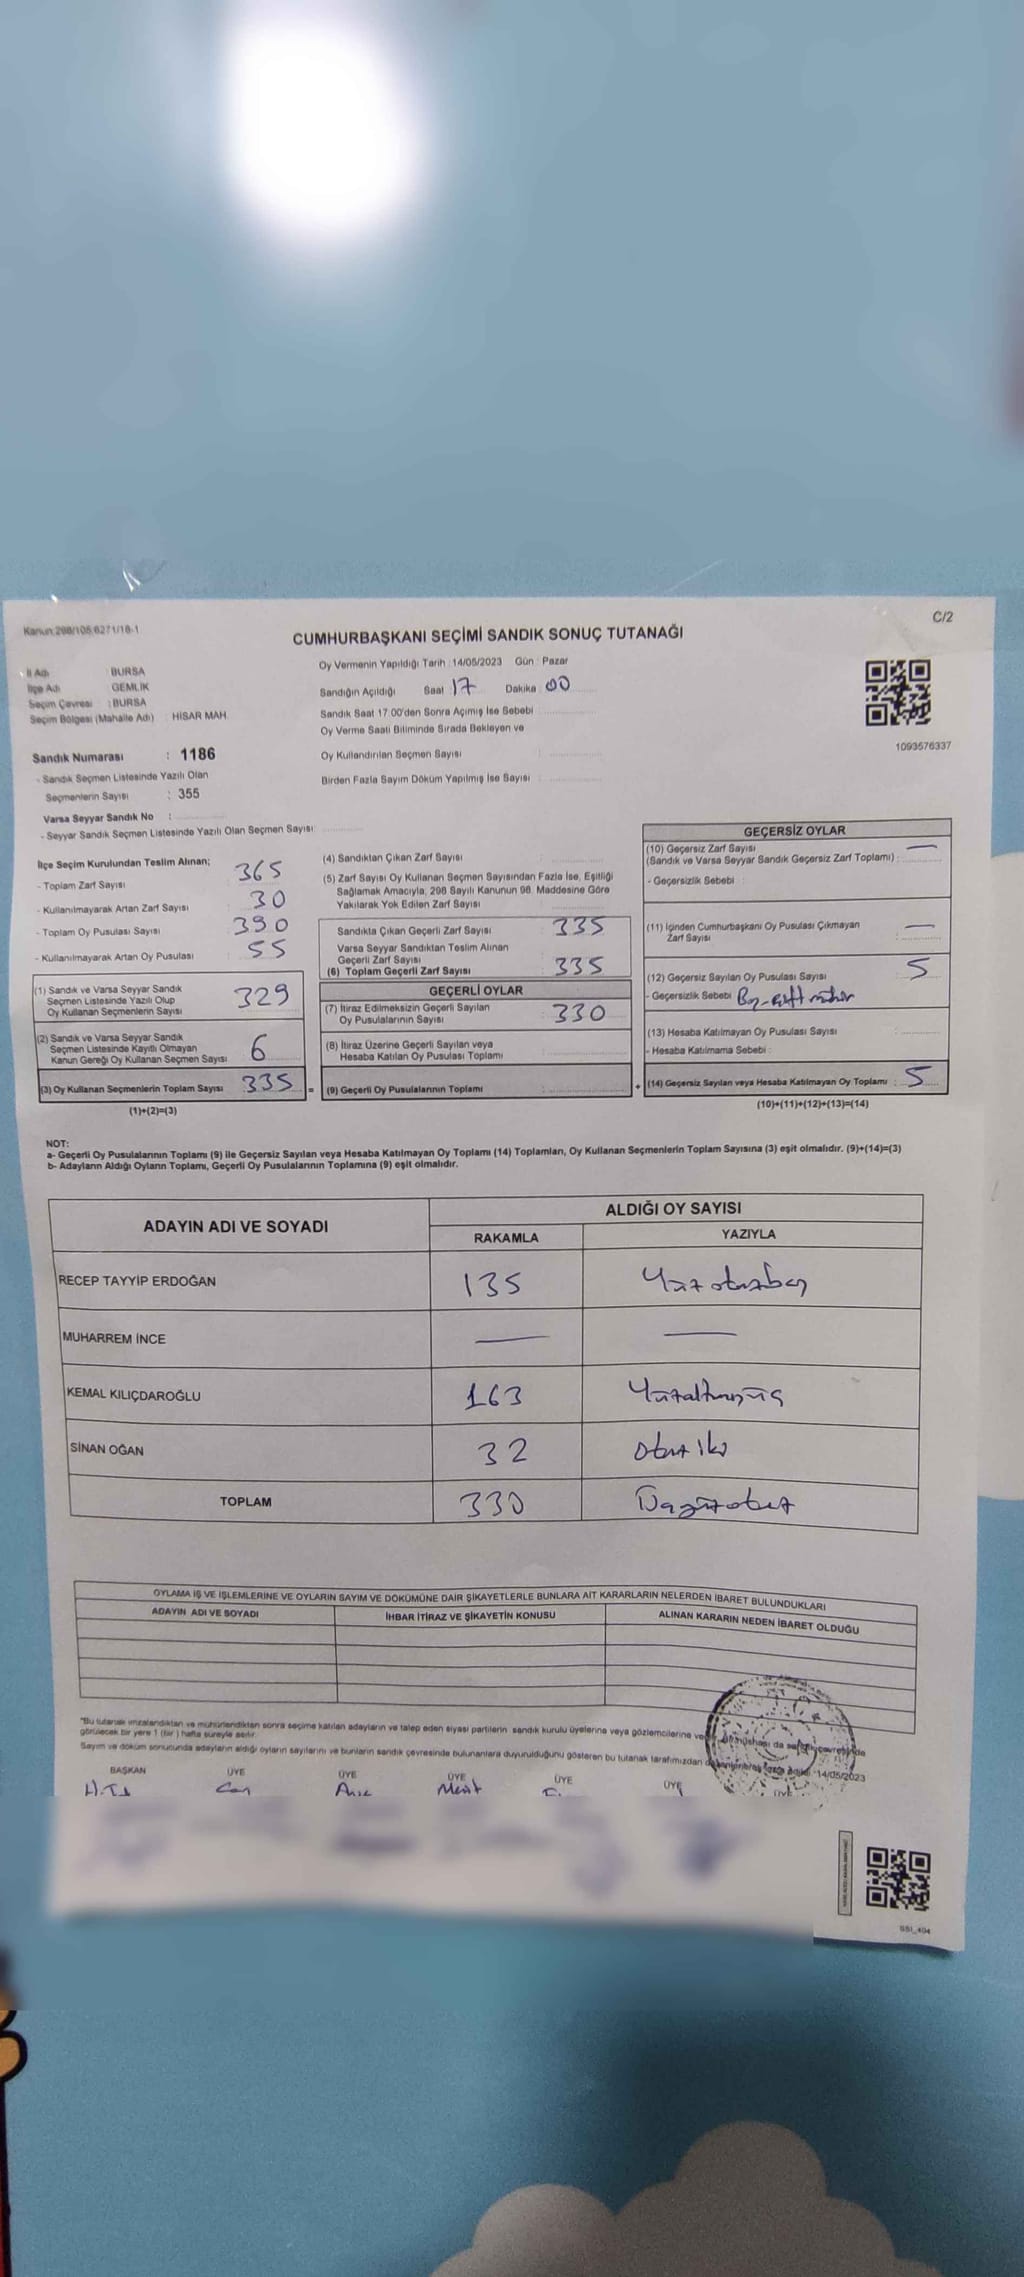 Kanun:298/105;6271/18-1
C/2
CUMHURBAŞKANI SEÇİMİ SANDIK SONUÇ TUTANAĞI
İl Adı : BURSA
İlçe Adı : GEMLİK
Seçim Çevresi : BURSA
Seçim Bölgesi (Mahalle Adı) : HİSAR MAH.
Oy Vermenin Yapıldığı Tarih : 14/05/2023 Gün : Pazar
Sandığın Açıldığı Saat : 17 Dakika : 00
Sandık Saat 17:00'den Sonra Açımış İse Sebebi
Oy Verme Saati Bitiminde Sırada Bekleyen ve
Oy Kullandırılan Seçmen Sayısı :
Birden Fazla Sayım Döküm Yapılmış İse Sayısı :
1093576337
Sandık Numarası : 1186
- Sandık Seçmen Listesinde Yazılı Olan
Seçmenlerin Sayısı : 355
Varsa Seyyar Sandık No :
- Seyyar Sandık Seçmen Listesinde Yazılı Olan Seçmen Sayısı:
İlçe Seçim Kurulundan Teslim Alınan;
- Toplam Zarf Sayısı : 365
- Kullanılmayarak Artan Zarf Sayısı : 30
- Toplam Oy Pusulası Sayısı : 390
- Kullanılmayarak Artan Oy Pusulası : 55
(1) Sandık ve Varsa Seyyar Sandık
Seçmen Listesinde Yazılı Olup
Oy Kullanan Seçmenlerin Sayısı : 329
(2) Sandık ve Varsa Seyyar Sandık
Seçmen Listesinde Kayıtlı Olmayan
Kanun Gereği Oy Kullanan Seçmen Sayısı : 6
(3) Oy Kullanan Seçmenlerin Toplam Sayısı : 335 =
(1)+(2)=(3)
(4) Sandıktan Çıkan Zarf Sayısı :
(5) Zarf Sayısı Oy Kullanan Seçmen Sayısından Fazla İse, Eşitliği
Sağlamak Amacıyla, 298 Sayılı Kanunun 98. Maddesine Göre
Yakılarak Yok Edilen Zarf Sayısı :
Sandıkta Çıkan Geçerli Zarf Sayısı : 335
Varsa Seyyar Sandıktan Teslim Alınan
Geçerli Zarf Sayısı
(6) Toplam Geçerli Zarf Sayısı : 335
GEÇERLİ OYLAR
(7) İtiraz Edilmeksizin Geçerli Sayılan
Oy Pusulalarının Sayısı : 330
(8) İtiraz Üzerine Geçerli Sayılan veya
Hesaba Katılan Oy Pusulası Toplamı :
(9) Geçerli Oy Pusulalarının Toplamı : +
GEÇERSİZ OYLAR
(10) Geçersiz Zarf Sayısı —
(Sandık ve Varsa Seyyar Sandık Geçersiz Zarf Toplamı) :
- Geçersizlik Sebebi :
(11) İçinden Cumhurbaşkanı Oy Pusulası Çıkmayan —
Zarf Sayısı :
(12) Geçersiz Sayılan Oy Pusulası Sayısı : 5
- Geçersizlik Sebebi : Boş-çift mühür
(13) Hesaba Katılmayan Oy Pusulası Sayısı :
- Hesaba Katılmama Sebebi :
(14) Geçersiz Sayılan veya Hesaba Katılmayan Oy Toplamı : 5
(10)+(11)+(12)+(13)=(14)
NOT:
a- Geçerli Oy Pusulalarının Toplamı (9) ile Geçersiz Sayılan veya Hesaba Katılmayan Oy Toplamı (14) Toplamları, Oy Kullanan Seçmenlerin Toplam Sayısına (3) eşit olmalıdır. (9)+(14)=(3)
b- Adayların Aldığı Oyların Toplamı, Geçerli Oy Pusulalarının Toplamına (9) eşit olmalıdır.
ADAYIN ADI VE SOYADI
ALDIĞI OY SAYISI
RAKAMLA YAZIYLA
RECEP TAYYİP ERDOĞAN 135 Yüzotuzbeş
MUHARREM İNCE — —
KEMAL KILIÇDAROĞLU 163 Yüzaltmışüç
SİNAN OĞAN 32 otuziki
TOPLAM 330 Üçyüzotuz
OYLAMA İŞ VE İŞLEMLERİNE VE OYLARIN SAYIM VE DÖKÜMÜNE DAİR ŞİKAYETLERLE BUNLARA AİT KARARLARIN NELERDEN İBARET BULUNDUKLARI
ADAYIN ADI VE SOYADI İHBAR İTİRAZ VE ŞİKAYETİN KONUSU ALINAN KARARIN NEDEN İBARET OLDUĞU
"Bu tutanak imzalandıktan ve mühürlendikten sonra seçime katılan adayların ve talep eden siyasi partilerin sandık kurulu üyelerine veya gözlemcilerine
görülecek bir yere 1 (bir ) hafta süreyle asılır.
Sayım ve döküm sonucunda adayların aldığı oyların sayılarını ve bunların sandık çevresinde bulunanlara duyurulduğunu gösteren bu tutanak tarafımızdan 14/05/2023
BAŞKAN ÜYE ÜYE ÜYE ÜYE ÜYE ÜYE